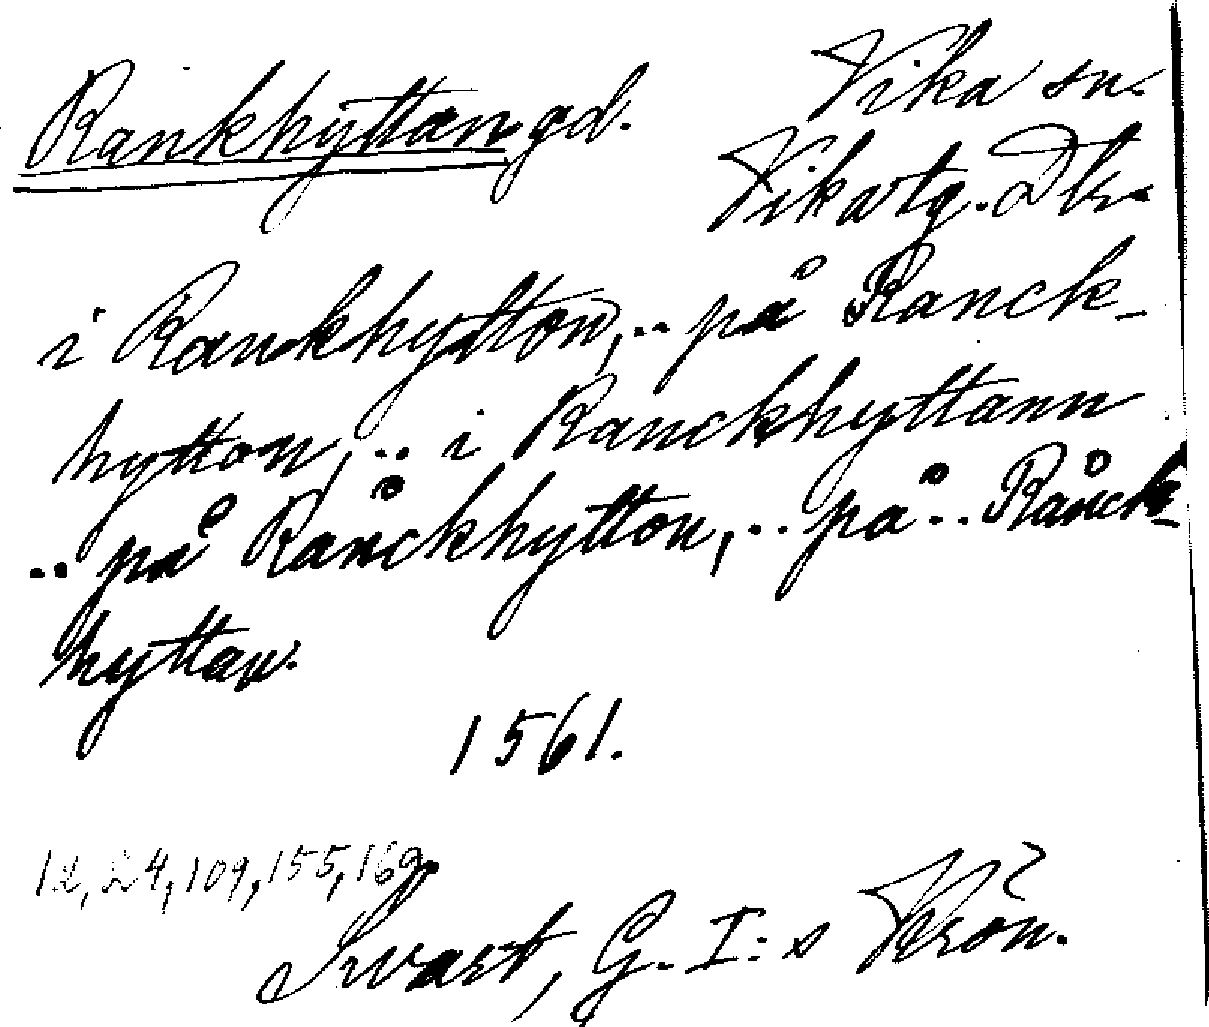 Rankhyttan gd.
Vika sn.
Vika tg. Dlr.
i Rankhytton,.. på Ranck-
hytton,.. i Ranckhyttann
.. på Rånckhytton,.. på.. Rånck-
hyttan.
1561.
12, 24, 109, 155, 169.
Svart, G. I:s Krön.